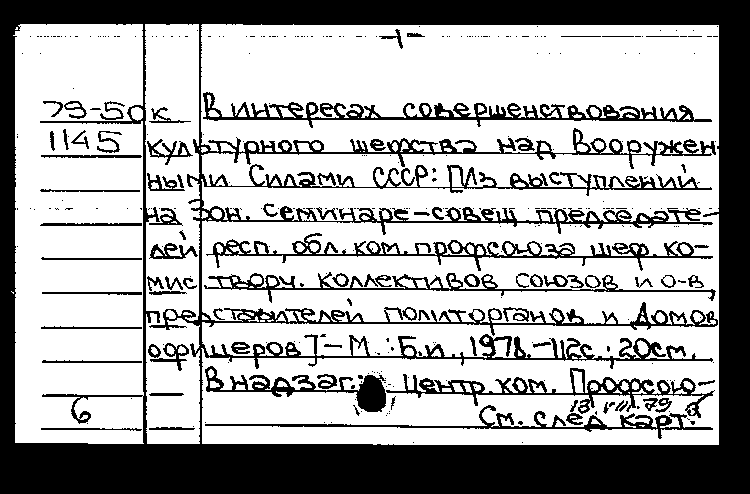 -1-
79-50к В интересах совершенствования
1145 культурного шефства над Вооружен-
ными Силами СССР: [Из выступлений
на Зон. семинаре-совещ. председате-
лей респ., обл. ком. профсоюза, шеф. ко-
мис. творч. коллективов, союзов и о-в,
представителей политорганов и Домов
офицеров]-М.: Б.и., 1978.-112с.; 20см.
В надзаг.: Центр. ком. Профсою-
18 VIII 79
6 См. след карт.